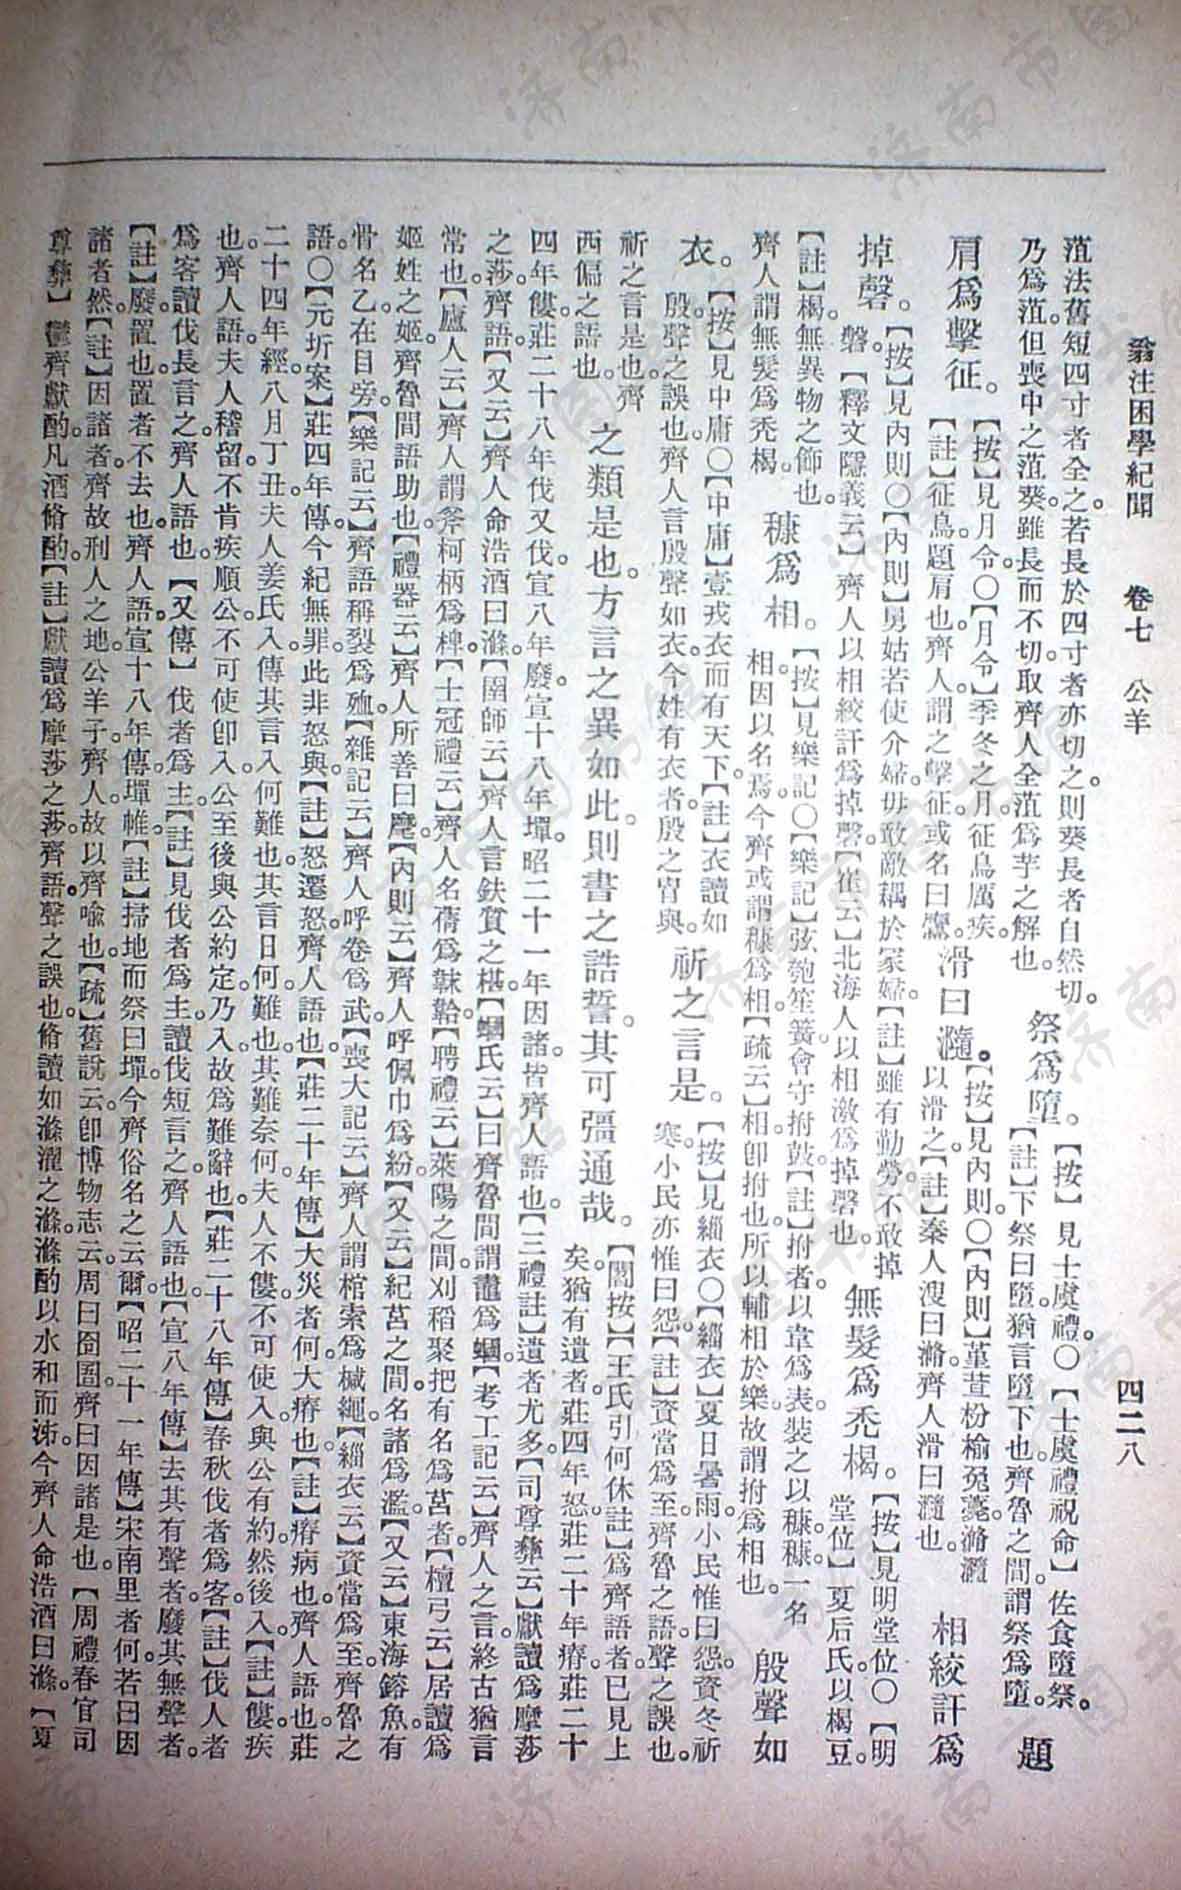 翁注困學紀聞 卷七 公羊 四二八
菹法舊短四寸者全之若長於四寸者亦切之則葵長者自然切。
乃爲菹但喪中之菹葵雖長而不切取齊人全菹爲芋之解也。
祭爲墮。
【按】見士虞禮。〇【士虞禮祝命】佐食墮祭。
【註】下祭曰墮猶言墮下也。齊魯之間謂祭爲墮。
題
肩爲擊征。
【按】見月令〇【月令】季冬之月征鳥厲疾。
【註】征鳥題肩也。齊人謂之擊征。或名曰鷹。
滑曰瀡。
【按】見內則。〇【內則】菫荁枌榆兔薧滫瀡
以滑之【註】秦人溲曰滫齊人滑曰瀡也。
相絞訐爲
掉磬。
【按】見內則〇【內則】舅姑若使介婦毋敢敵耦於冢婦【註】雖有勤勞不敢掉
磬。【釋文隱義云】齊人以相絞訐爲掉磬【崔云】北海人以相激爲掉磬也。
無髮爲禿楬。
【按】見明堂位〇【明
堂位】夏后氏以楬豆。
【註】楬無異物之飾也。
齊人謂無髮爲禿楬。
穅爲相。
【按】見樂記〇【樂記】弦匏笙簧會守拊鼓【註】拊者以韋爲表裝之以穅穅一名
相因以名焉今齊或謂穅爲相【疏云】相卽拊也。所以輔相於樂故謂拊爲相也。
殷聲如
衣。
【按】見中庸〇【中庸】壹戎衣而有天下【註】衣讀如
殷聲之誤也齊人言殷聲如衣今姓有衣者殷之冑與。
祈之言是。
【按】見緇衣〇【緇衣】夏日暑雨小民惟曰怨資冬祈
寒小民亦惟曰怨【註】資當爲至齊魯之語聲之誤也。
祈之言是也齊
西偏之語也。
之類是也。方言之異如此。則書之誥誓。其可彊通哉。
【閻按】【王氏引何休註】爲齊語者已見上
矣猶有遺者莊四年怒莊二十年瘠莊二十
四年僂莊二十八年伐又伐宣八年廢宣十八年墠昭二十一年因諸皆齊人語也【三禮註】遺者尤多【司尊彝云】獻讀爲摩莎
之莎齊語【又云】齊人命浩酒曰滌【圉師云】齊人言鈇質之椹【蟈氏云】曰齊魯間謂鼃爲蟈【考工記云】齊人之言終古猶言
常也【廬人云】齊人謂斧柯柄爲椑【士冠禮云】齊人名蒨爲韎韐【聘禮云】萊陽之間刈稻聚把有名爲筥者【檀弓云】居讀爲
姬姓之姬齊魯間語助也【禮器云】齊人所善曰麾【內則云】齊人呼佩巾爲紛【又云】紀莒之間名諸爲濫【又云】東海鎔魚有
骨名乙在目旁【樂記云】齊語稱裂爲殈【雜記云】齊人呼卷爲武【喪大記云】齊人謂棺索爲緘繩【緇衣云】資當爲至齊魯之
語〇【元圻案】莊四年傳今紀無罪此非怒與【註】怒遷怒齊人語也【莊二十年傳】大災者何大瘠也【註】瘠病也齊人語也莊
二十四年經八月丁丑夫人姜氏入傳其言入何難也其言日何難也其難奈何夫人不僂不可使入與公有約然後入【註】僂疾
也齊人語夫人稽留不肯疾順公不可使卽入公至後與公約定乃入故爲難辭也【莊二十八年傳】春秋伐者爲客【註】伐人者
爲客讀伐長言之齊人語也【又傳】伐者爲主【註】見伐者爲主讀伐短言之齊人語也【宣八年傳】去其有聲者廢其無聲者。
【註】廢置也置者不去也齊人語宣十八年傳墠帷【註】掃地而祭曰墠今齊俗名之云爾【昭二十一年傳】宋南里者何若曰因
諸者然【註】因諸者齊故刑人之地公羊子齊人故以齊喩也【疏】舊說云卽博物志云周曰囹圄齊曰因諸是也【周禮春官司
尊彝】鬱齊獻酌凡酒脩酌【註】獻讀爲摩莎之莎齊語聲之誤也脩讀如滌濯之滌滌酌以水和而泲今齊人命浩酒曰滌【夏